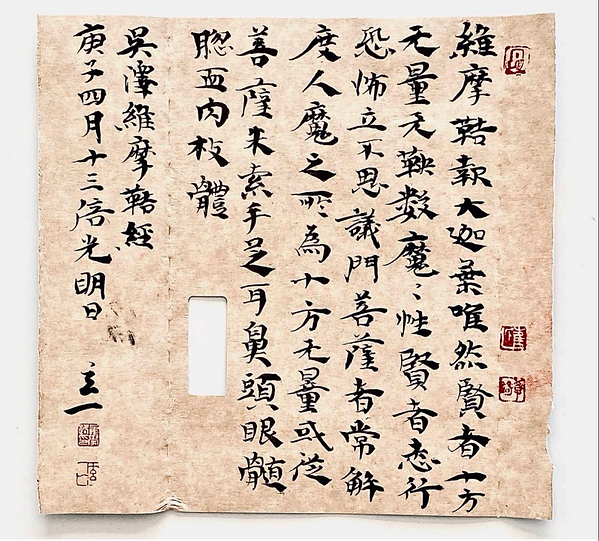 維摩鞊報大迦葉唯然賢者十方
无量无鞅数魔魔性賢者悉行
恐怖立不思議門菩薩者常解
度人魔之所為十方无量或從
菩薩来索手足耳鼻頭眼髓
𦛁血肉枝體
吳譯維摩鞊經
庚子四月十三倍光明日
立一